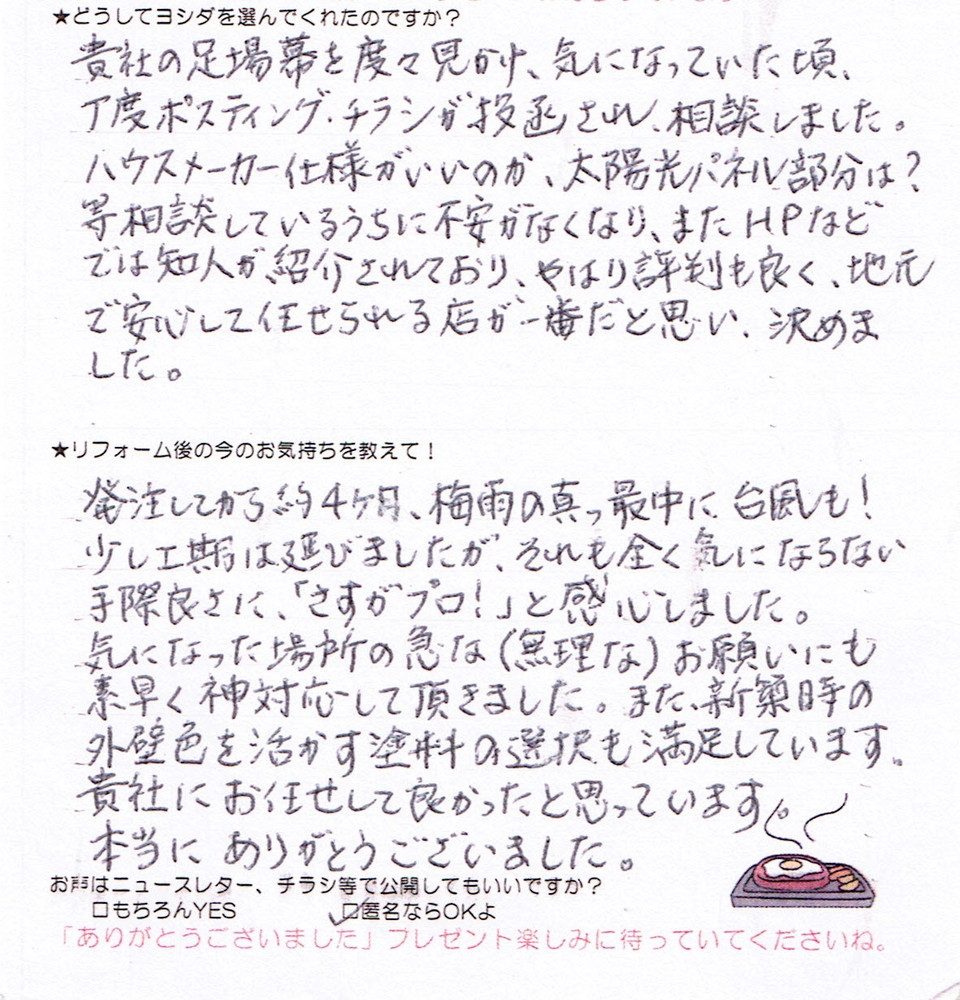 ★どうしてヨシダを選んでくれたのですか？
貴社の足場幕を度々見かけ、気になっていた頃、
丁度ポスティング・チラシが投函され、相談しました。
ハウスメーカー仕様がいいのか、太陽光パネル部分は？
等相談しているうちに不安がなくなり、またHPなど
では知人が紹介されており、やはり評判も良く、地元
で安心して任せられる店が一番だと思い、決めま
した。
★リフォーム後の今のお気持ちを教えて！
発注してから約4ケ月、梅雨の真っ最中に台風も！
少し工期は延びましたが、それも全く気にならない
手際良さに、「さすがプロ！」と感心しました。
気になった場所の急な(無理な)お願いにも
素早く神対応して頂きました。また、新築時の
外壁色を活かす塗料の選択も満足しています。
貴社にお任せして良かったと思っています。
本当にありがとうございました。
お声はニュースレター、チラシ等で公開してもいいですか？
□もちろんYES □匿名ならOKよ
「ありがとうございました」プレゼント楽しみに待っていてくださいね。